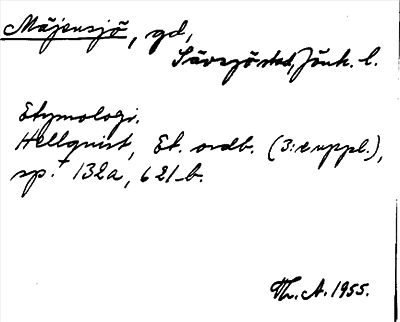 Måjensjö, gd,
Sävsjö stad, Jönk. l.
Etymologi.
Hellquist, Et. ordb. (3:e uppl.),
sp. 132a, 621b.
Th. A. 1955.